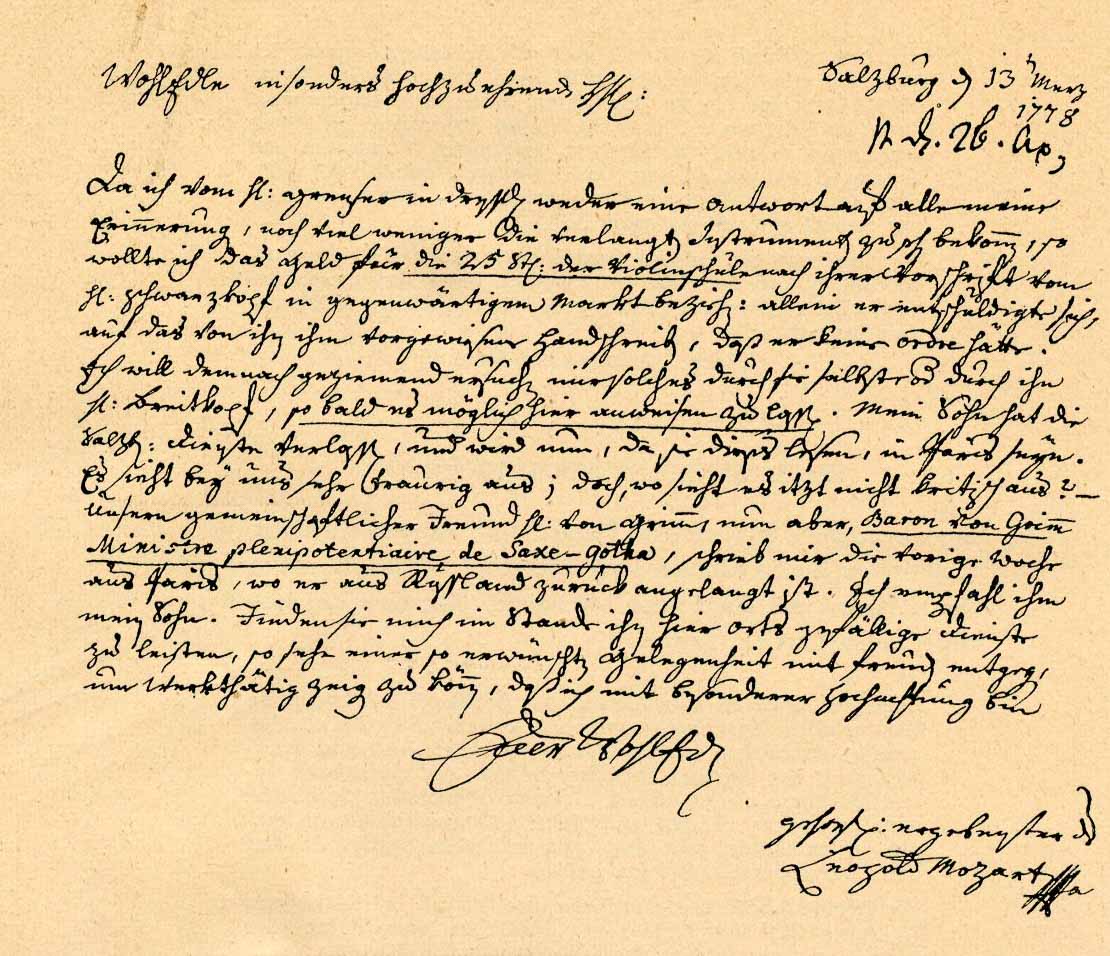 WohlEdle insonders hochzuehrende HH:
Salzburg d 13ᵗ Merz
1778
d. 26. Ap,
Da ich vom H: grenser in dressd weder eine Antwort auf alle meine
Erinnerung, noch viel weniger die verlangt Instrument zu sh bekomm, so
wollte ich das Geld für die 25 St: der Violinschule nach ihrer Vorschrift vom
H: schwarzkopf in gegenwärtigem Markt bezieh: allein er entschuldigte sich,
auf das von ihn ihm vorgewiesene Handschreib, daß er keine ordre hätte.
Ich will demnach geziemend ersuch mir solches durch sie selbst od durch ihn
H: Breitkopf, so bald es möglich hier anweisen zu lass. Mein Sohn hat die
Salzb: dienste verlass, und wird nun, da sie dieses lesen, in Paris seyn.
Es sieht bey uns sehr traurig aus; doch, wo sieht es itzt nicht kritisch aus? –
Unsern gemeinschaftlicher Freund H: von Grimm, nun aber, Baron von Grimm
Ministre plenipotentiaire de Saxe-Gotha, schrieb mir die vorige woche
aus Paris, wo er aus Russland zurück angelangt ist. Ich empfahl ihm
mein Sohn. Finden sie mich im Stande ihn hier orts gefällige dienste
zu leisten, so sehe einer so erwünscht gelegenheit mit freud entgeg,
um werkthätig zeig zu könn, daß ich mit besonderer Hochachtung bin
Euer WohlEd
gehors: ergebenster d
Leopold Mozart